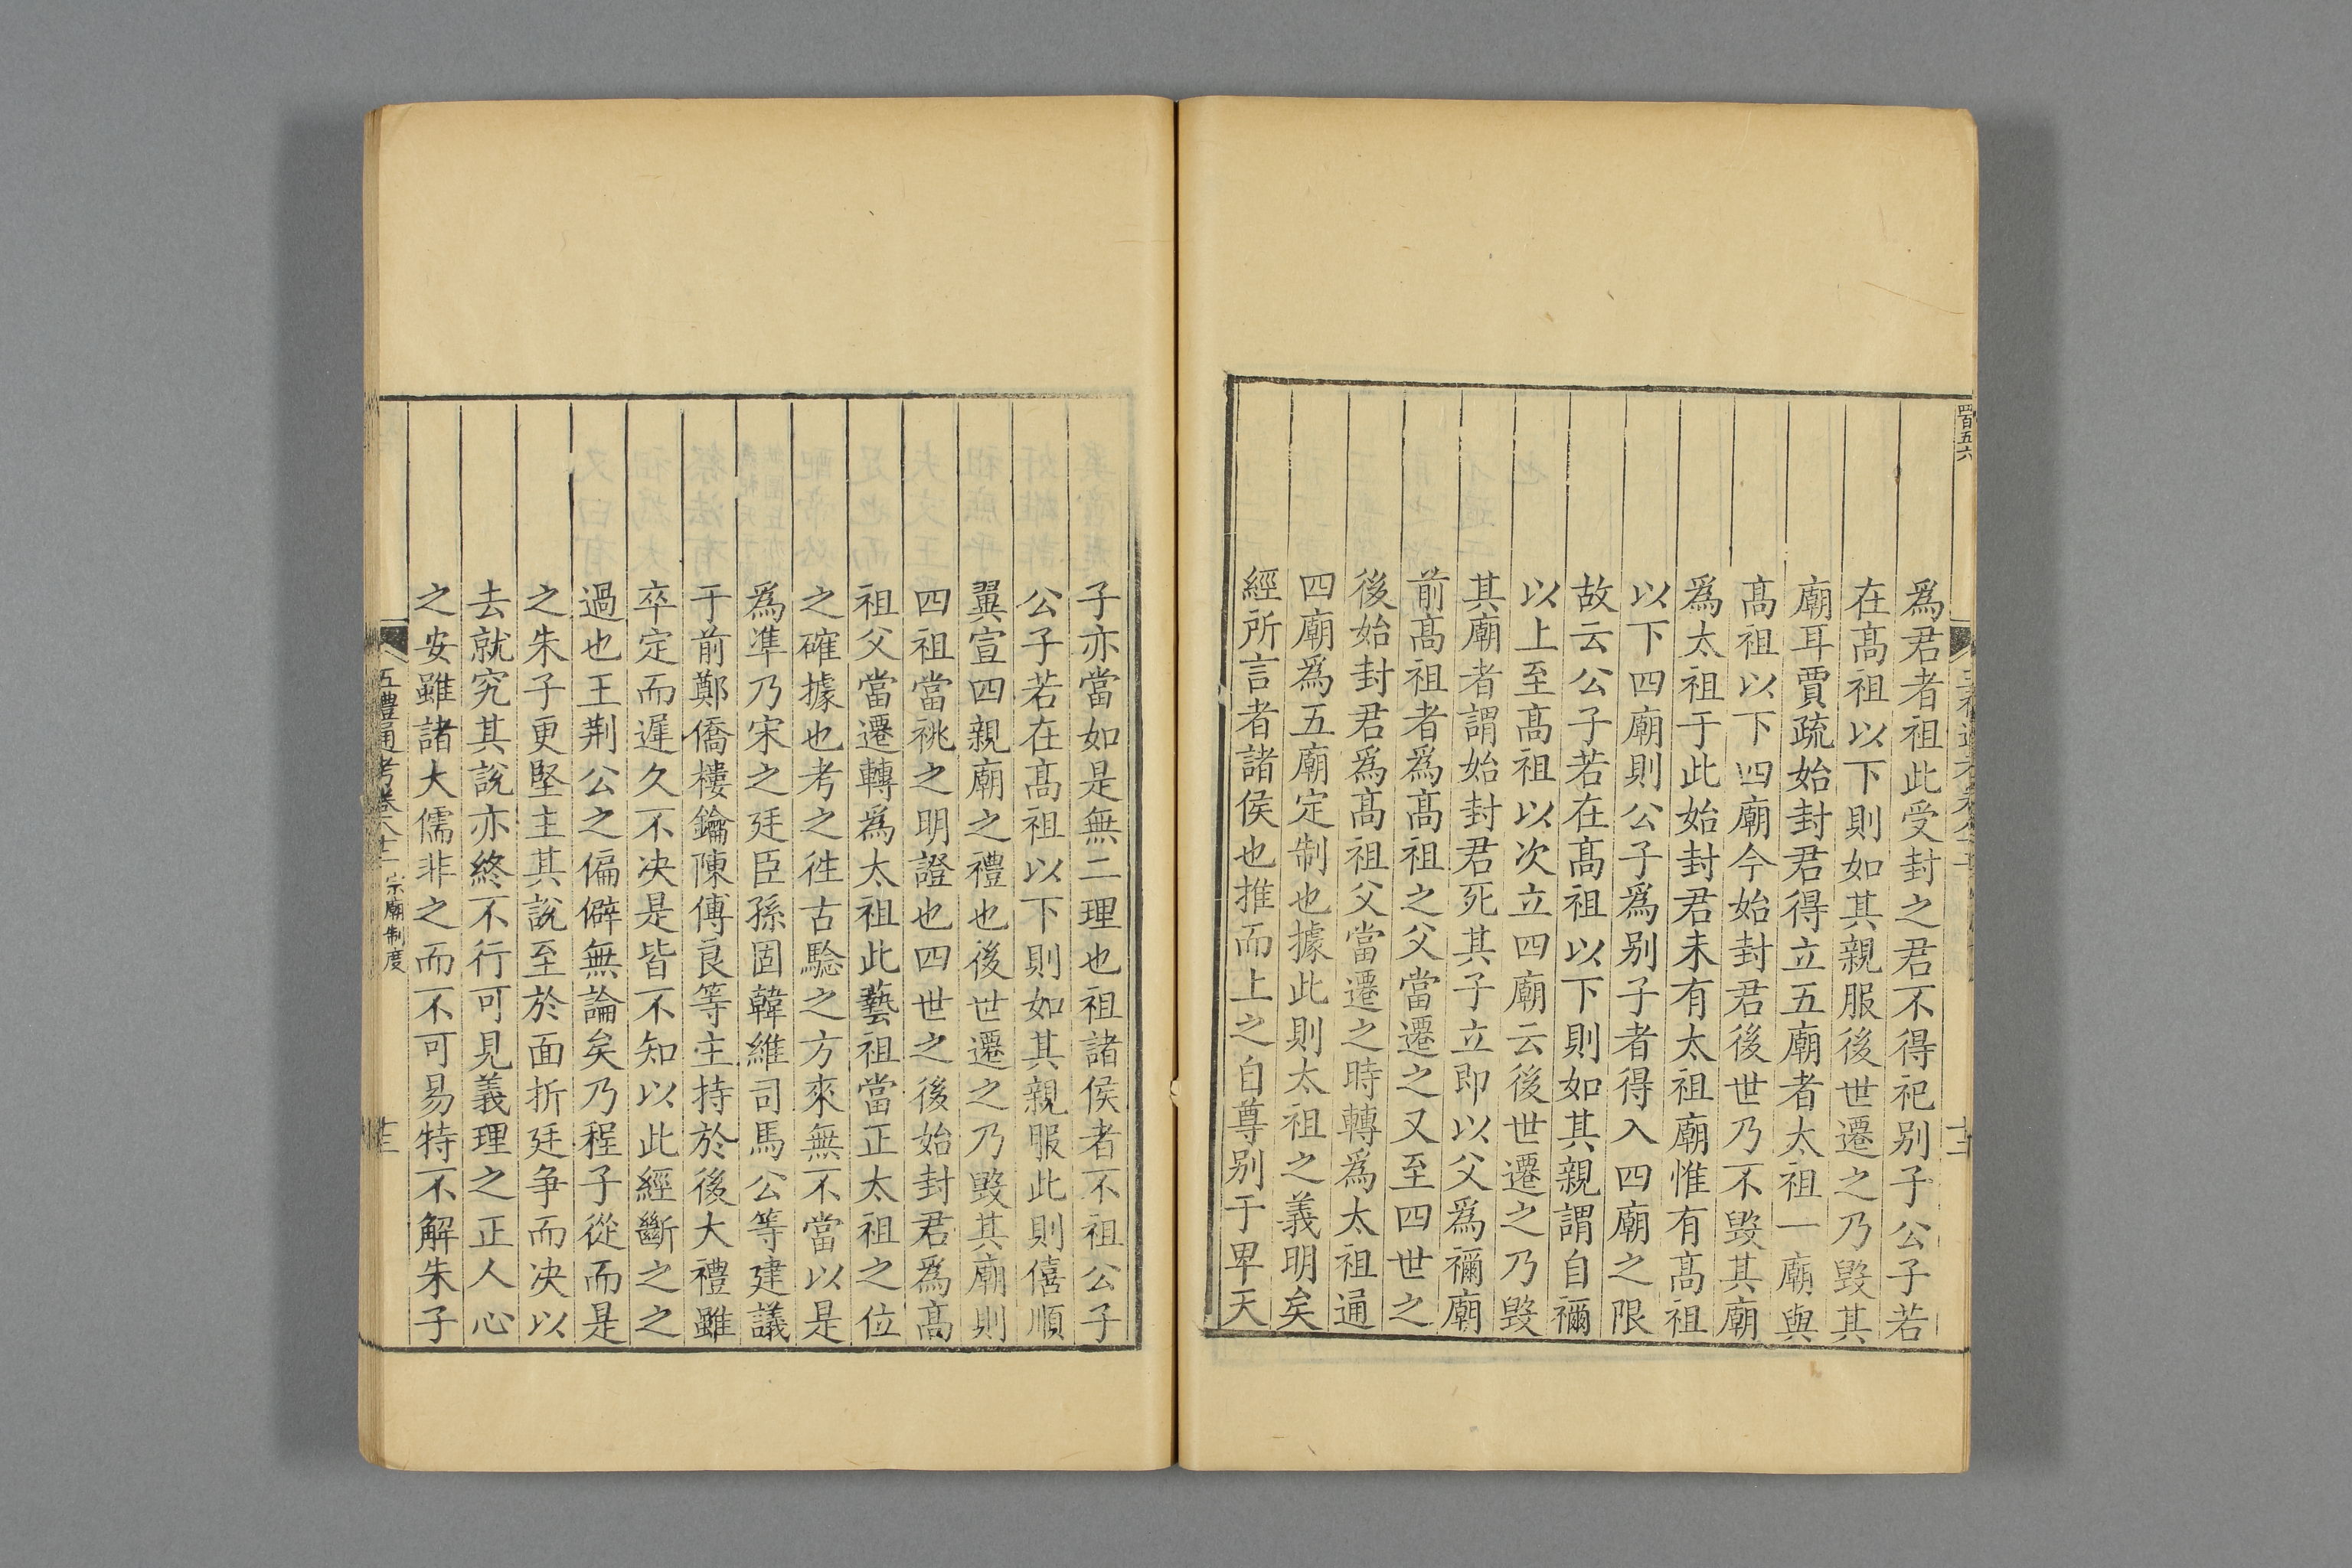 四百五六
爲君者祖此受封之君不得祀别子公子若
在髙祖以下則如其親服後世遷之乃毀其
廟耳賈疏始封君得立五廟者太祖一廟與
髙祖以下四廟今始封君後世乃不毀其廟
爲太祖于此始封君未有太祖廟惟有髙祖
以下四廟則公子爲别子者得入四廟之限
故云公子若在髙祖以下則如其親謂自禰
以上至髙祖以次立四廟云後世遷之乃毀
其廟者謂始封君死其子立即以父爲禰廟
前髙祖者爲髙祖之父當遷之又至四世之
後始封君爲髙祖父當遷之時轉爲太祖通
四廟爲五廟定制也據此則太祖之義明矣
經所言者諸侯也推而上之自尊别于卑天
子亦當如是無二理也祖諸侯者不祖公子
公子若在髙祖以下則如其親服此則僖順
翼宣四親廟之禮也後世遷之乃毀其廟則
四祖當祧之明證也四世之後始封君爲髙
祖父當遷轉爲太祖此藝祖當正太祖之位
之確據也考之徃古騐之方來無不當以是
爲凖乃宋之廷臣孫固韓維司馬公等建議
于前鄭僑樓鑰陳傅良等主持於後大禮雖
卒定而遲久不决是皆不知以此經斷之之
過也王荆公之偏僻無論矣乃程子從而是
之朱子更堅主其説至於面折廷争而决以
去就究其說亦終不行可見義理之正人心
之安雖諸大儒非之而不可易特不解朱子
五禮通考卷八十二 宗廟制度